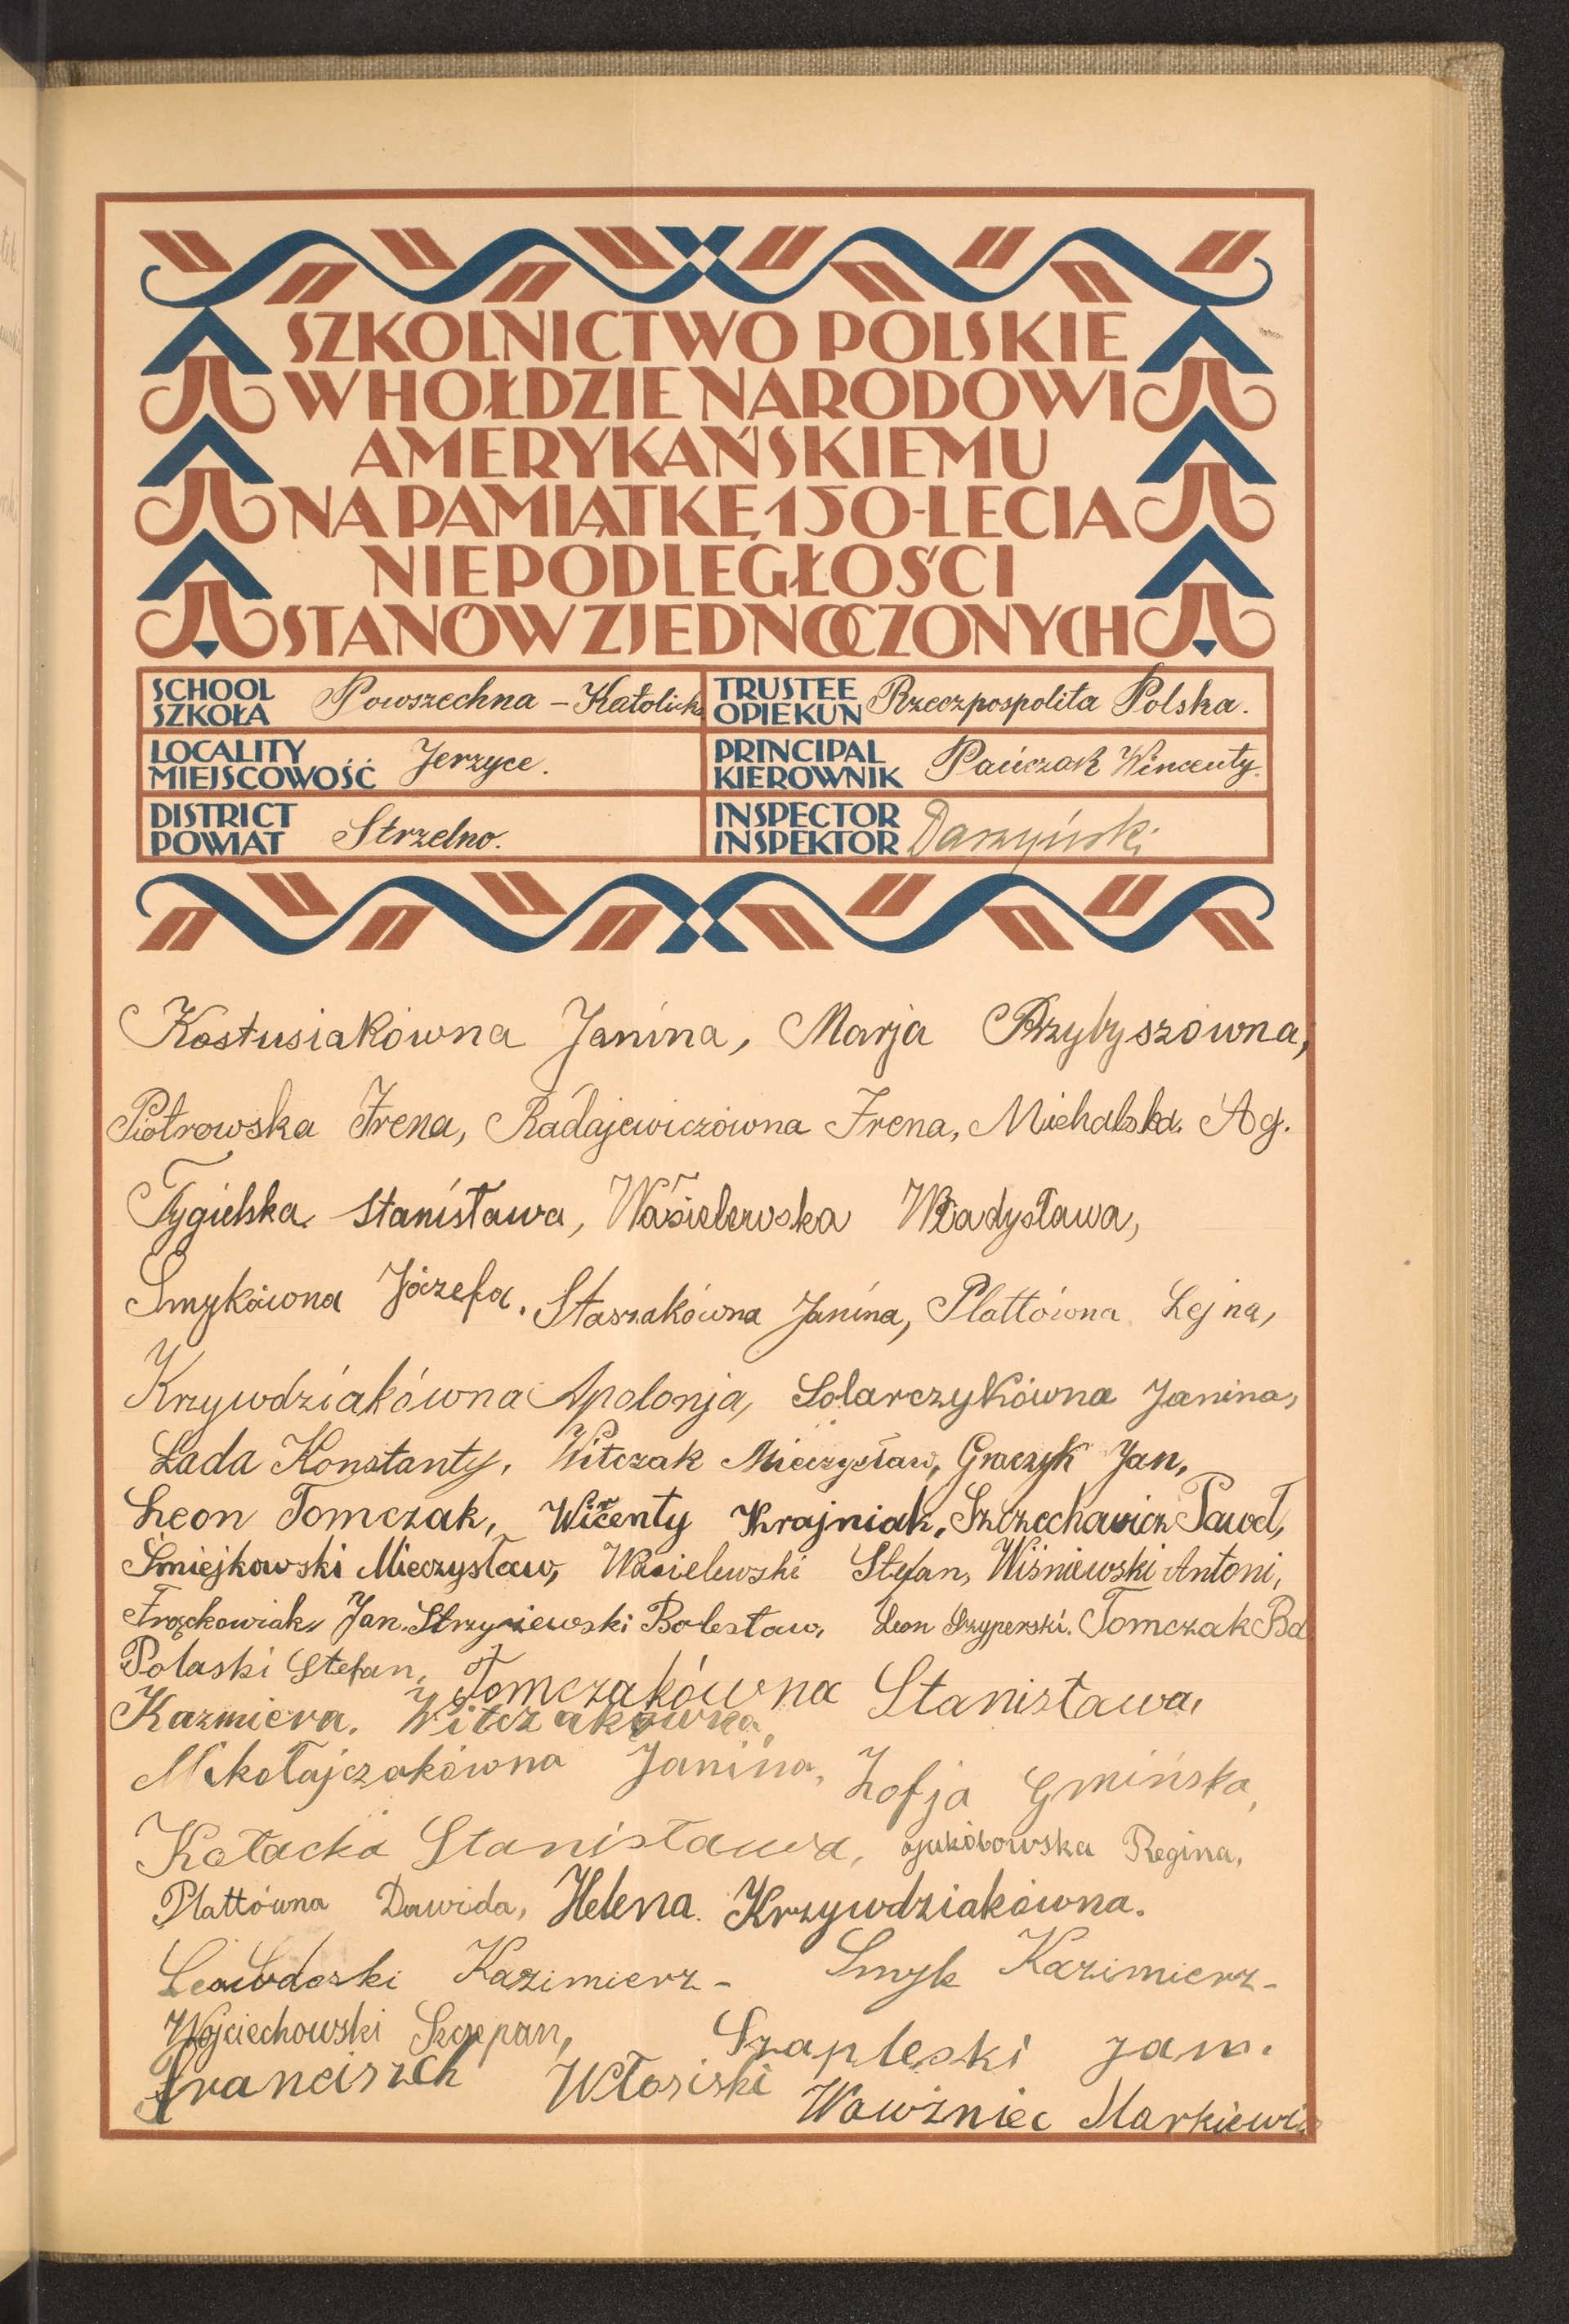 SZKOLNICTWO POLSKIE
W HOŁDZIE NARODOWI
AMERYKAŃSKIEMU
NA PAMIĄTKĘ 150-LECIA
NIEPODLEGŁOŚCI
STANÓW ZJEDNOCZONYCH
SCHOOL SZKOŁA Powszechna – Katolick
TRUSTEE OPIEKUN Rzeczpospolita Polska.
LOCALITY MIEJSCOWOŚĆ Jerzyce.
PRINCIPAL KIEROWNIK Pańczak Wincenty.
DISTRICT POWIAT Strzelno.
INSPECTOR INSPEKTOR Daszyński
Kostusiakówna Janina, Marja Przybyszówna,
Piotrowska Irena, Radajewiczówna Irena, Michalska. Ag.
Tygielska. Stanisława, Wasielewska Władysława,
Smykówna Józefa. Staszakówna Janina, Plattówna Lejna,
Krzywdziakówna Apolonja, Solarczykówna Janina,
Lada Konstanty, Witczak Mieczysław, Graczyk Jan,
Leon Tomczak, Wicenty Krajniak, Szczechowicz Paweł,
Śmiejkowski Mieczysław, Wasielewski Stefan, Wiśniewski Antoni,
Frąckowiak, Jan. Strzyżewski Bolesław, Leon Szyperski. Tomczak Bol
Polaski Stefan, Tomczakówna Stanisława,
Kazmiera. Witczakówna,
Mikołajczakówna Janina, Zofja Gmińska,
Kołacka Stanisława, Jakóbowska Regina,
Plattówna Dawida, Helena. Krzywdziakówna.
Kazimierz – Smyk Kazimierz –
Wojciechowski Szczepan, Szapleski Jan.
Franciszek Włosiski
Wawżniec Markiewicz